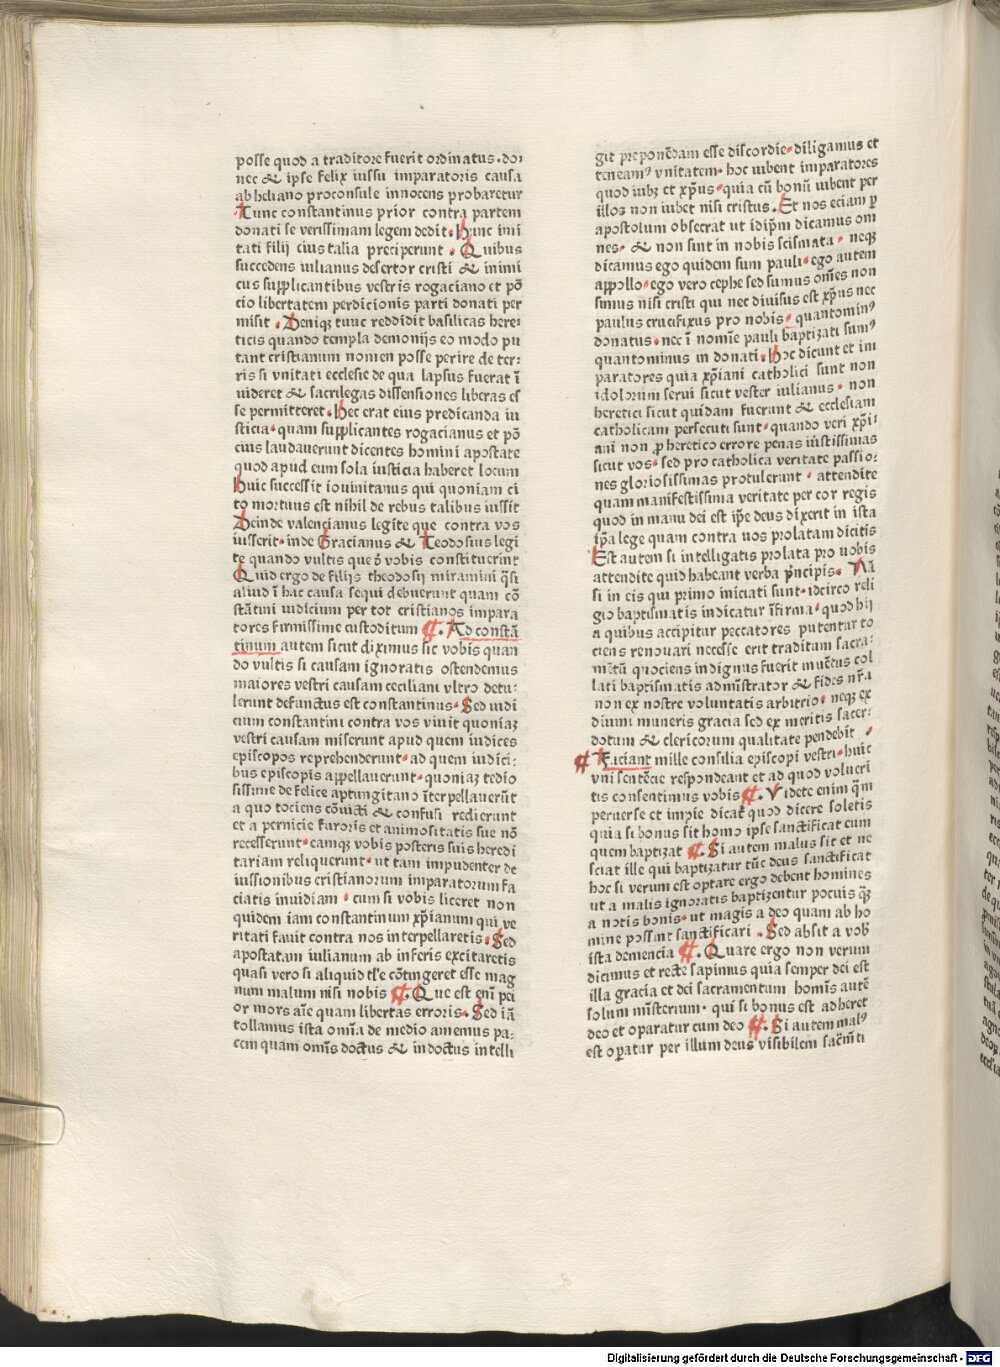 posse quod a traditore fuerit ordinatus · do⸗
nec & ipse felix iussu imparatoris causa
ab heliano proconsule innocens probaretur
Tunc constantinus prior contra partem
donati seuerissimam legem dedit · Hunc imi
tati filij eius talia preciperunt · Quibus
succedens iulianus desertor cristi & inimi
cus supplicantibus vestris rogaciano et põ
cio libertatem perdicionis parti donati per
misit · Deniqꝫ tunc reddidit basilicas here⸗
ticis quando templa demonijs eo modo pu
tant cristianum nomen posse perire de ter⸗
ris si vnitati ecclesie de qua lapsus fuerat ĩ
uideret & sacrilegas dissensiones liberas es
se permitteret · Hec erat eius predicanda iu
sticia · quam supplicantes rogacianus et põ
cius laudauerunt dicentes homini apostate
quod apud eum sola iusticia haberet locum
Huic successit iouinianus qui quoniam ci
to mortuus est nihil de rebus talibus iussit
Deinde valencianus legite que contra vos
iusserit · inde Gracianus & Teodosius legi
te quando vultis que ð vobis constituerint
Quid ergo de filijs theodosij miramini q̃si
aliud ĩ hac causa sequi debuerunt quam cõ
stãtini iudicium per tot cristianos impara
tores firmissime custoditum ¶ · Ad constã
tinum autem sicut diximus sic vobis quan
do vultis si causam ignoratis ostendemus
maiores vestri causam ceciliani vltro detu⸗
lerunt defunctus est constantinus · Sed iudi
cium constantini contra vos viuit quoniaꝫ
vestri causam miserunt apud quem iudices
episcopos reprehenderunt · ad quem iudici⸗
bus episcopis appellauerunt · quoniaꝫ tedio
sissime de felice aptungitano ĩterpellauerũt
a quo tociens cõuicti & confusi redierunt
et a pernicie furoris et animositatis sue nõ
recesserunt · eamqꝫ vobis posteris suis heredi
tariam reliquerunt · ut tam impudenter de
iussionibus cristianorum imparatorum fa
ciatis inuidiam · cum si vobis liceret non
quidem iam constantinum xp̃ianum qui ve
ritati fauit contra nos interpellaretis · Sed
apostatam iulianum ab inferis excitaretis
quasi vero si aliquid tl̃e cõtingeret esse mag
num malum nisi nobis ¶ · Que est eni᷑ pei
or mors aĩe quam libertas erroris · Sed iã
tollamus ista om̃ia de medio amemus pa⸗
cem quam om̃is doctus & indoctus intelli
git preponẽdam esse discordie · diligamus et
teneamꝰ vnitatem · hoc iubent imparatores
quod iubꝫ et xp̃us · quia cũ bonũ iubent per
illos non iubet nisi cristus · Et nos eciam ꝑ
apostolum obsecrat ut idip̃m dicamus om
nes · & non sint in nobis scismata · neqꝫ
dicamus ego quidem sum pauli · ego autem
appollo · ego vero cephe sed sumus om̃es non
simus nisi cristi qui nec diuisus est xp̃us nec
paulus crucifixus pro nobis · quantominꝰ
donatus · nec ĩ nomĩe pauli baptizati sumꝰ
quantominus in donati · Hoc dicunt et im
paratores quia xp̃iani catholici sunt non
idolorum serui sicut vester iulianus · non
heretici sicut quidam fuerunt & ecclesiam
catholicam persecuti sunt · quando veri xp̃i⸗
ani non ꝓ heretico errore penas iustissimas
sicut vos · sed pro catholica veritate passio⸗
nes gloriosissimas protulerunt · attendite
quam manifestissima veritate per cor regis
quod in manu dei est ip̃e deus dixerit in ista
ip̃a lege quam contra uos prolatam dicitis
Est autem si intelligatis prolata pro uobis
attendite quid habeant verba p̃ncipis · Nã
si in eis qui primo iniciati sunt · idcirco reli
gio baptismatis indicatur ĩfirma · quod hij
a quibus accipitur peccatores putentur to
ciens renouari necesse erit traditum sacra⸗
mẽtũ quociens indignus fuerit inuẽtus col
lati baptismatis admĩstrator & fides nr̃a
non ex nostre voluntatis arbitrio · neqꝫ ex
diuini muneris gracia sed ex meritis sacer⸗
dotum & clericorum qualitate pendebit
¶ Faciant mille consilia episcopi vestri · huic
vni sentẽcie respondeant et ad quod volueri
tis consentimus vobis ¶ · Videte enim q̃m
peruerse et impie dicat̃ quod dicere soletis
quia si bonus sit homo ipse sanctificat eum
quem baptizat ¶ · Si autem malus sit et ne
sciat ille qui baptizatur tũc deus sanctificat
hoc si verum est optare ergo debent homines
ut a malis ignoratis baptizentur pocius q̃ꝫ
a notis bonis · ut magis a deo quam ab ho
mine possint sanctificari · Sed absit a vob̃
ista demencia ¶ · Quare ergo non verum
dicimus et recte sapimus quia semper dei est
illa gracia et dei sacramentum homĩs autẽ
solum mĩsterium · qui si bonus est adheret
deo et operatur cum deo ¶ · Si autem malꝰ
est oꝑatur per illum deus visibilem sac̃mẽti
Digitalisierung gefördert durch die Deutsche Forschungsgemeinschaft - DFG